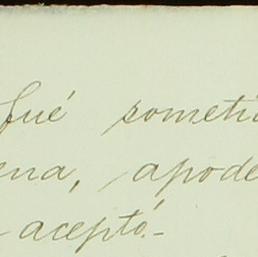 fué someti
ena, apode
aceptó.-